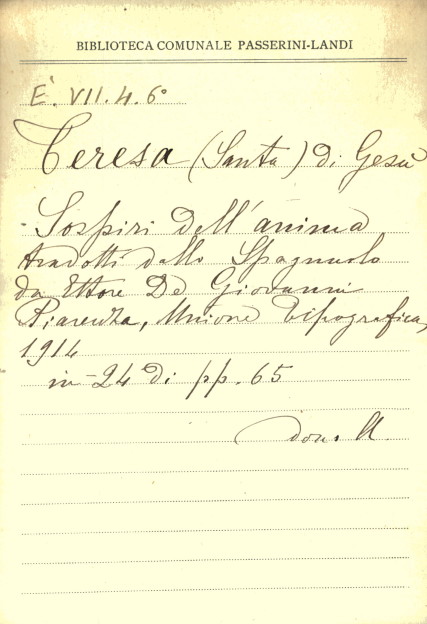 BIBLIOTECA COMUNALE PASSERINI-LANDI
E. VII. 4. 6°
Teresa (Santa) di Gesù
Sospiri dell'anima
tradotti dallo Spagnuolo
da Ettore De Giovanni
Piacenza, Unione Tipografica,
1914
in-24° di pp. 65
don. A